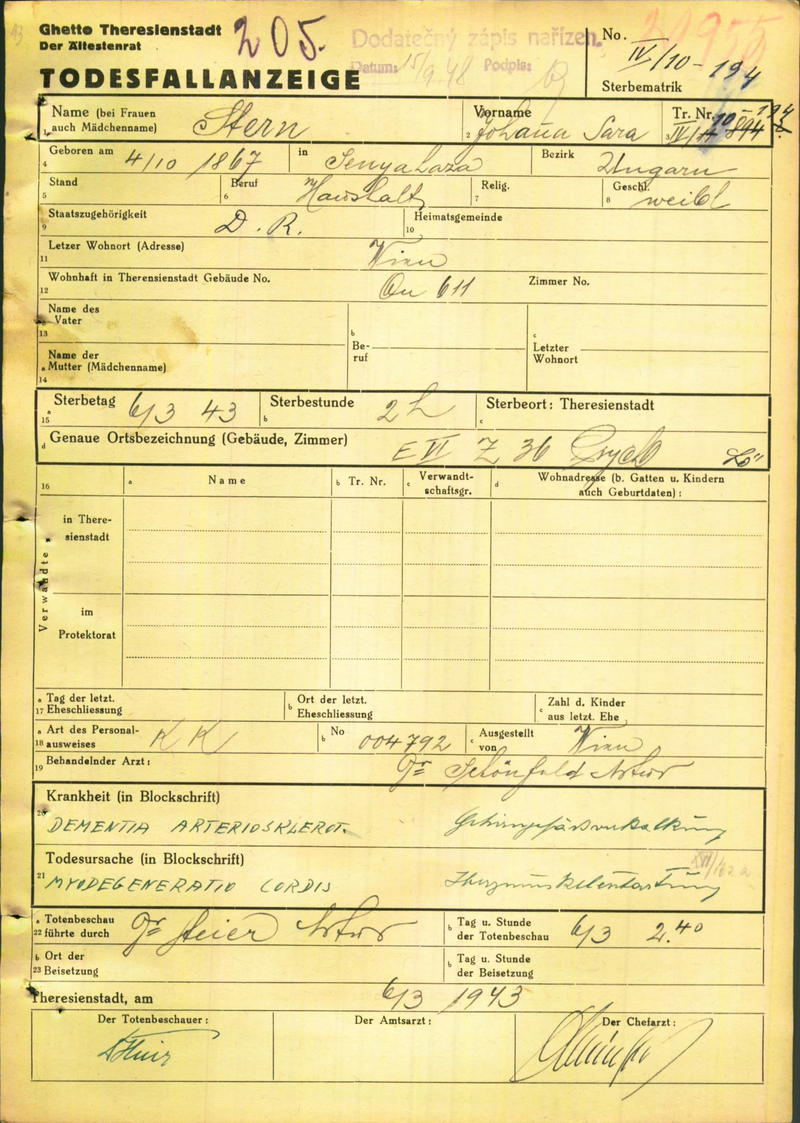 Ghetto Theresienstadt
Der Ältestenrat
205.
Dodatečný zápis nařízen.
Datum: 15/9.48 Podpis:
No. IV/10-194
Sterbematrik
TODESFALLANZEIGE
1 Name (bei Frauen auch Mädchenname) Stern
2 Vorname Johana Sara
3 Tr. Nr.
4 Geboren am 4/10 1867 in Bezirk Ungarn
5 Stand
6 Beruf Haushalt
7 Relig.
8 Geschl. weibl
9 Staatszugehörigkeit D. R.
10 Heimatsgemeinde
11 Letzer Wohnort (Adresse) Wien
12 Wohnhaft in Therensienstadt Gebäude No. Qu 611 Zimmer No.
13 a Name des Vater
b Beruf
c Letzter Wohnort
14 a Name der Mutter (Mädchenname)
15 a Sterbetag 6/3 43
b Sterbestunde 2h
c Sterbeort: Theresienstadt
d Genaue Ortsbezeichnung (Gebäude, Zimmer) E VI Z 36
16 a Name
b Tr. Nr.
c Verwandtschaftsgr.
d Wohnadresse (b. Gatten u. Kindern auch Geburtdaten):
Verwandte
in Theresienstadt
im Protektorat
17 a Tag der letzt. Eheschliessung
b Ort der letzt. Eheschliessung
c Zahl d. Kinder aus letzt. Ehe
18 a Art des Personalausweises KK
b No 004792
c Ausgestellt von Wien
19 Behandelnder Arzt: Dr Schönfeld Artur
Krankheit (in Blockschrift)
20 DEMENTIA ARTERIOSKLEROT. Gehirngefässverkalkung
Todesursache (in Blockschrift)
21 MYODEGENERATIO CORDIS Herzmuskelentartung
22 a Totenbeschau führte durch Dr Artur
b Tag u. Stunde der Totenbeschau 6/3 2.40
23 b Ort der Beisetzung
b Tag u. Stunde der Beisetzung
Theresienstadt, am 6/3 1943
Der Totenbeschauer:
Der Amtsarzt:
Der Chefarzt: